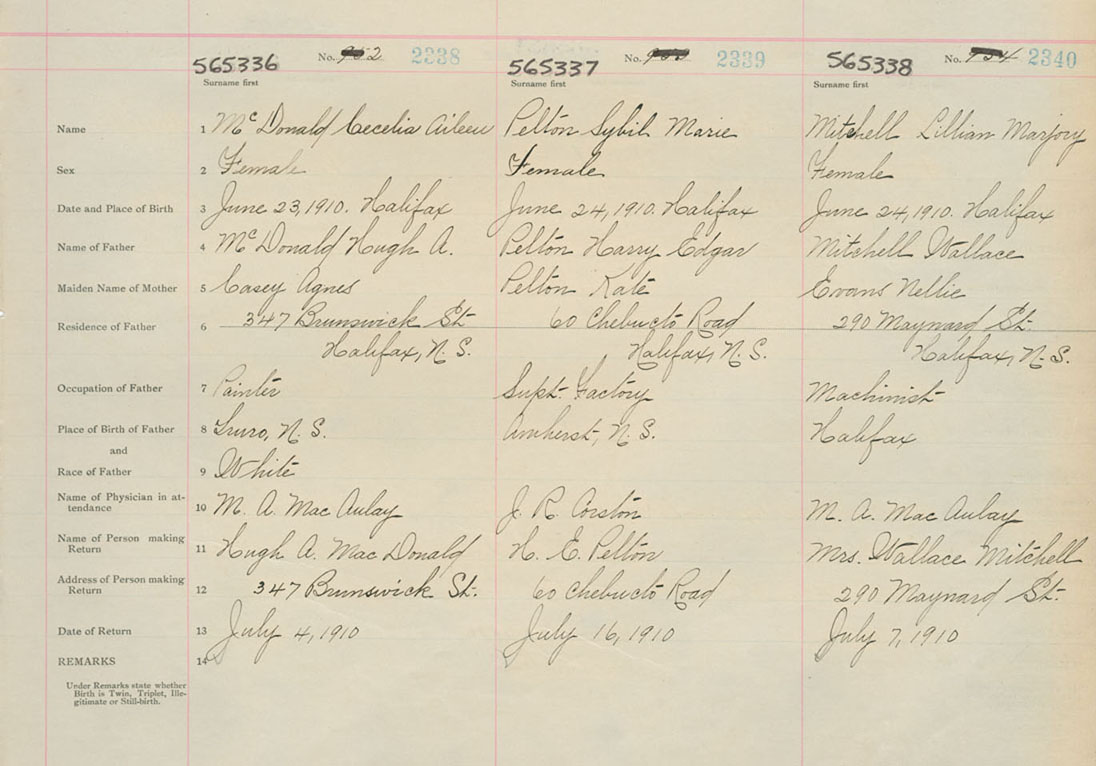 565336 No. 2238 565337 No. 2339 565338 No. 2340
Surname first Surname first Surname first
Name 1 McDonald Cecelia Aileen Pelton Sybil Marie Mitchell Lillian Marjory
Sex 2 Female Female Female
Date and Place of Birth 3 June 23, 1910. Halifax June 24, 1910. Halifax June 24, 1910. Halifax
Name of Father 4 McDonald Hugh A. Pelton Harry Edgar Mitchell Wallace
Maiden Name of Mother 5 Casey Agnes Pelton Kate Evans Nellie
Residence of Father 6 347 Brunswick St. 60 Chebucto Road 290 Maynard St.
Halifax, N.S. Halifax, N.S. Halifax, N.S.
Occupation of Father 7 Painter Supt. Factory Machinist
Place of Birth of Father 8 Truro, N.S. Amherst, N.S. Halifax
and
Race of Father 9 White
Name of Physician in at-
tendance 10 M. A. MacAulay J. R. Corston M. A. MacAulay
Name of Person making
Return 11 Hugh A. MacDonald H. E. Pelton Mrs. Wallace Mitchell
Address of Person making
Return 12 347 Brunswick St. 60 Chebucto Road 290 Maynard St.
Date of Return 13 July 4, 1910 July 16, 1910 July 7, 1910
REMARKS 14
Under Remarks state whether
Birth is Twin, Triplet, Ille-
gitimate or Still-birth.